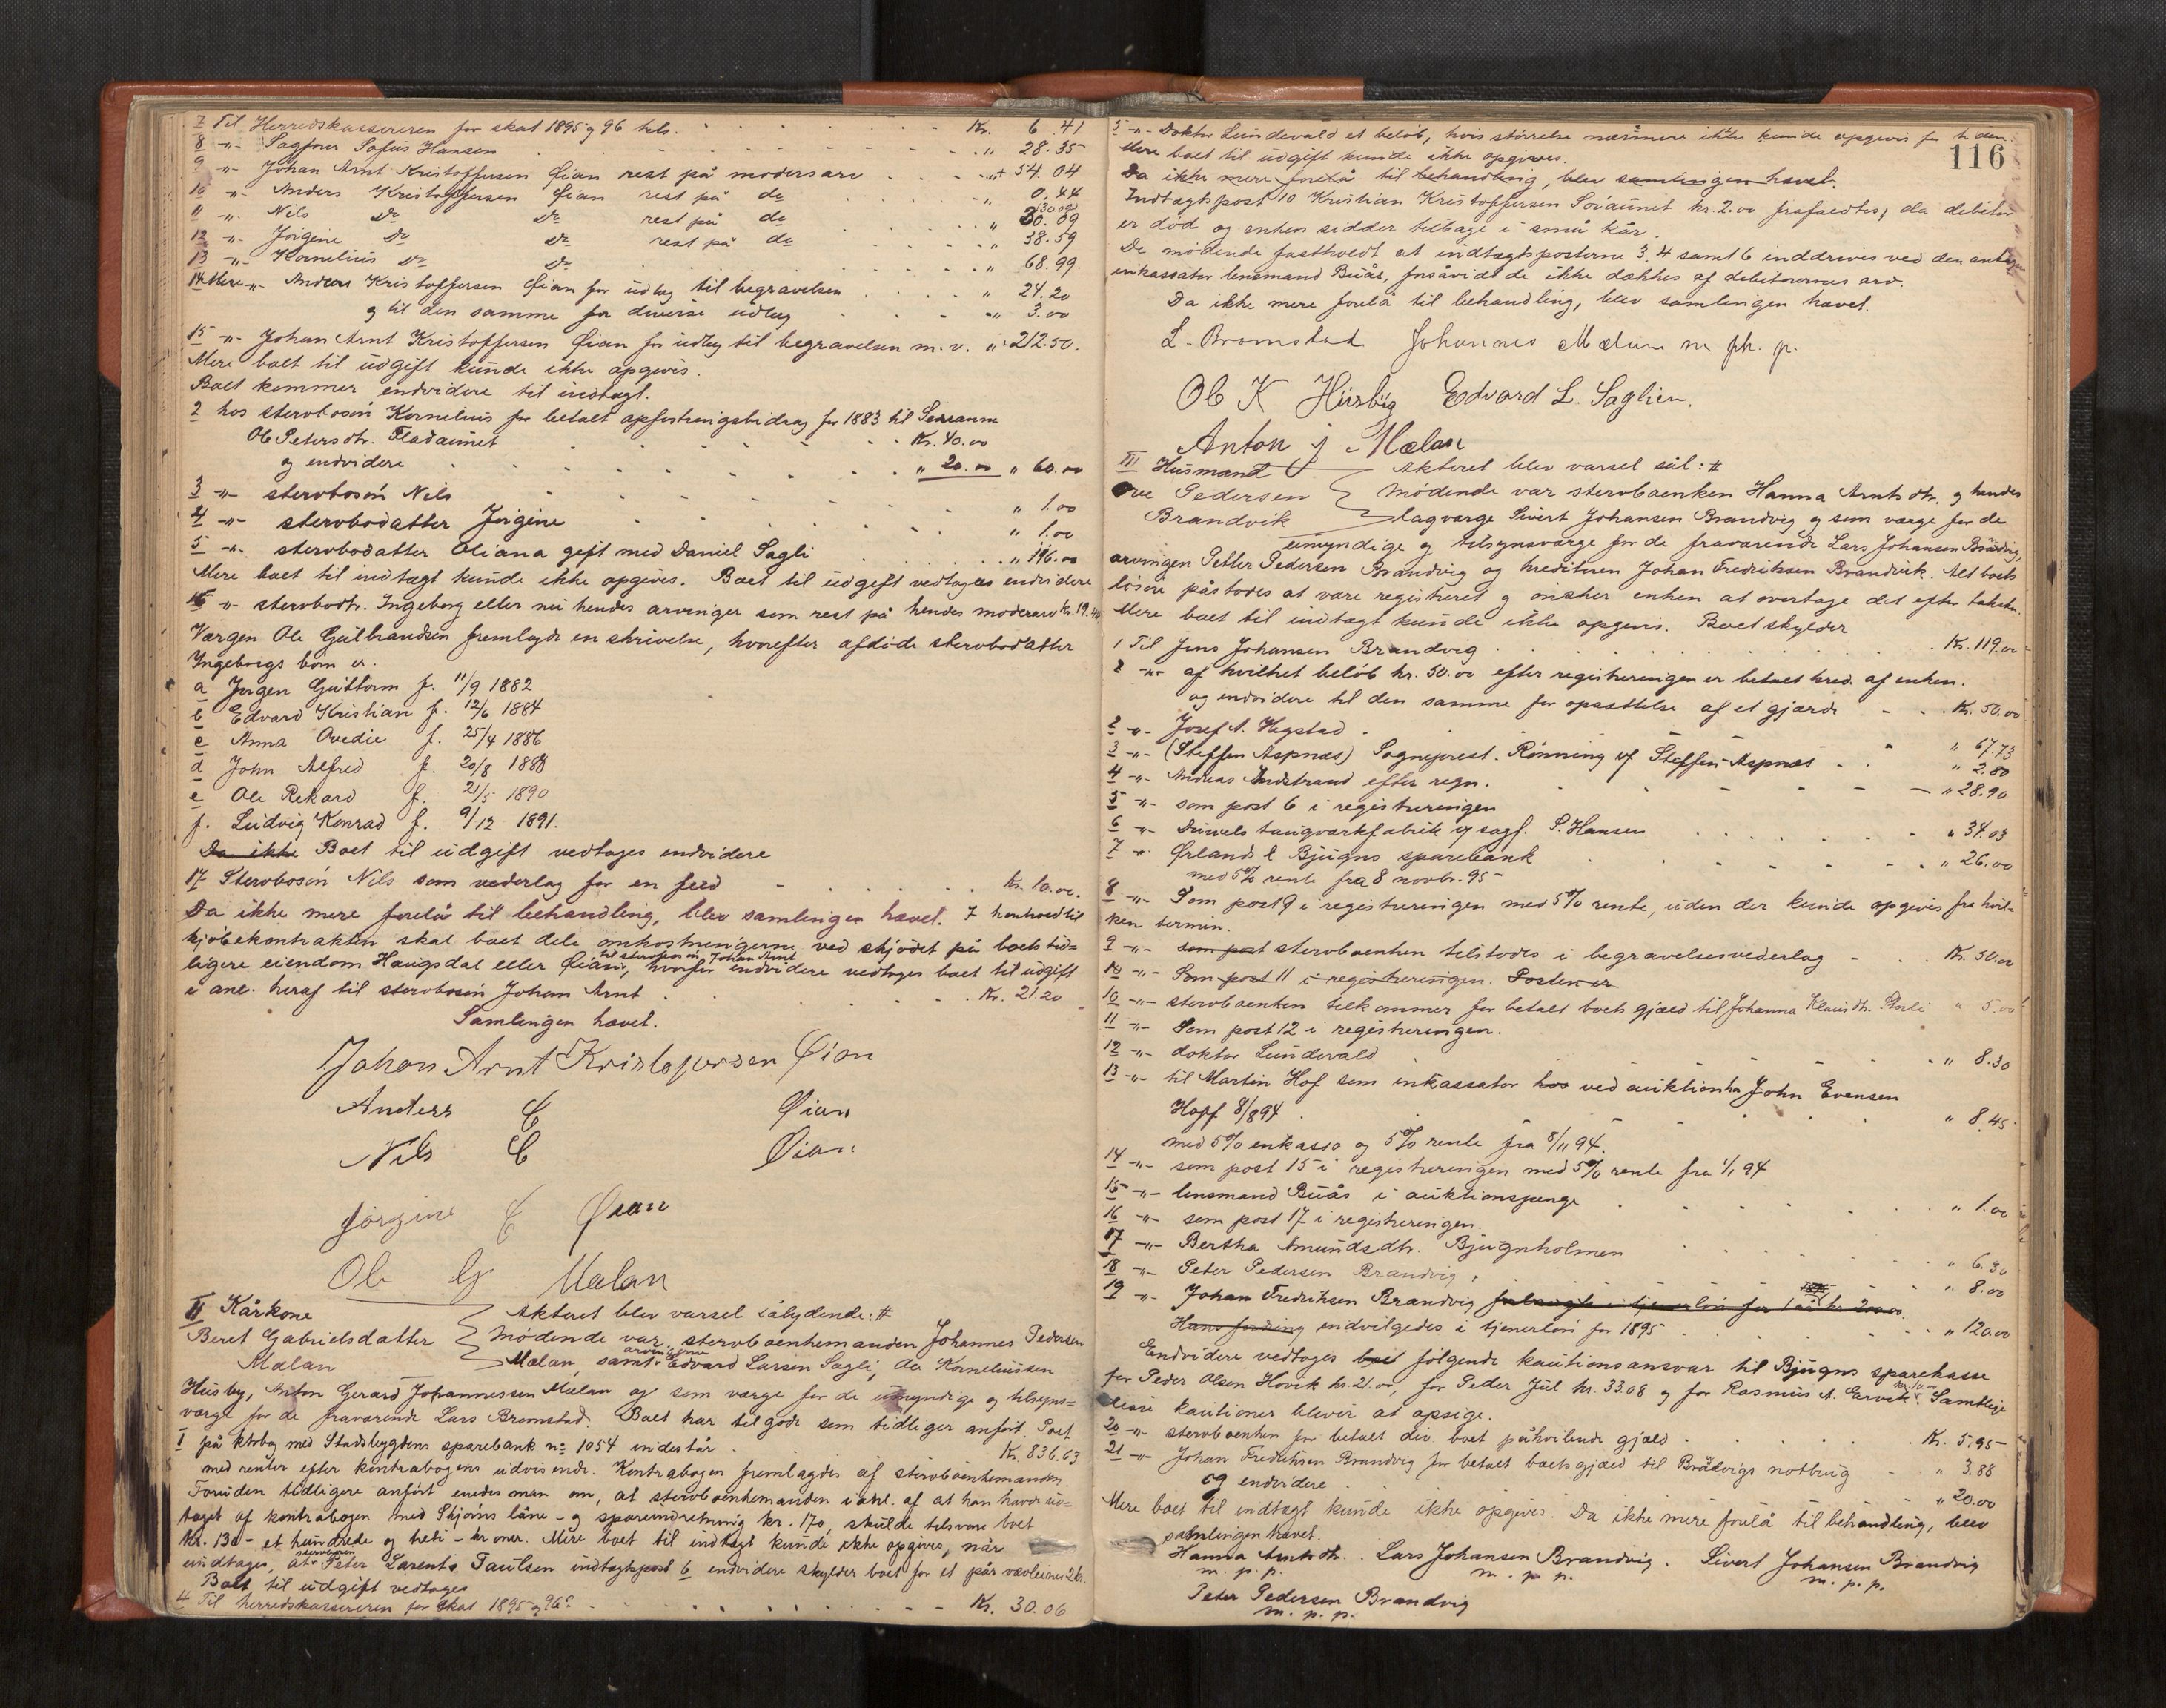 7 Til Herredskassereren for skat 1895 og 96 tils. Kr. 6.41
8 -"- Sagfører Sofus Hansen " 28.35
9 -"- Johan Arnt Kristoffersen Øian rest på modersarv " 54.04
10 -"- Anders Kristoffersen Øian rest på do " 0.44
11 -"- Nils Do Do rest på do " 30.09
12 -"- Jørgine Do Do rest på do " 38.59
13 -"- Kornelius Do Do " 68.99
14 Mere -"- Anders Kristoffersen Øian for udlæg til begravelsen " 24.20
og til den samme for diverse udlæg " 3.00
15 -"- Johan Arnt Kristoffersen Øian for udlæg til begravelsen m.v. " 212.50.
Mere boet til udgift kunde ikke opgives.
Boet kommer endvidere til indtægt.
2 hos stervbosøn Kornelius for betalt opfostringsbidrag for 1883 til
Ole Petersdtr. Fladaunet Kr. 40.00
og endvidere " 20.00 " 60.00
3 -"- stervbosøn Nils " 1.00
4 -"- stervbodatter Jørgine " 1.00
5 -"- stervbodatter Oliana gift med Daniel Sagli " 116.00
Mere boet til indtægt kunde ikke opgives. Boet til udgift vedtages endvidere
16 -"- stervbodtr. Ingeborg eller nu hendes arvinger som rest på hendes modersarv Kr. 19.
Værgen Ole Gulbrandsen fremlagde en skrivelse, hvorefter afdøde stervbodatter
Ingeborgs børn er.
a Jørgen Guttorm f. 11/9 1882
b Edvard Kristian f. 12/6 1884
c Anna Ovedie f. 25/4 1886
d John Alfred f. 20/8 1888
e Ole Rekard f. 21/5 1890
f. Ludvig Konrad f. 9/12 1891.
Da ikke Boet til udgift vedtages endvidere
17 Stervbosøn Nils som vederlag for en Kr. 10.00.
Da ikke mere forelå til behandling, blev samlingen hævet. I henhold til
kjøbekontrakten skal boet dele omkostningerne ved skjødet på boets tid=
til stervbosøn Johan Arnt
ligere eiendom Haugsdal eller Øian, hvorfor endvidere vedtages boet til udgift
i anl. heraf til stervbosøn Johan Arnt Kr. 21.20
Samlingen hævet.
Johan Arnt Kristofersen Øian
Anders C Øian
Nils C Øian
Jørgine C Øian
Ole G Mælan
II Kårkone
Beret Gabrielsdatter
Mælan
Akteret blev varsel sålydende: #
Mødende var stervboenkemanden Johannes Pedersen
arvingerne
Mælan, samt Edvard Larsen Sagli, Ole Korneliussen
Husby, Anton Gerard Johannessen Mælan og som værge for de umyndige og tilsyns=
værge for de fraværende Lars Bromstad. Boet har tilgode som tidligere anført. Post
1 på ktrbog med Stadsbygdens sparebank no 1054 indestår Kr. 836.63
med renter efter kontrabogens udvisende. Kontrabogen fremlagdes af stervboenkemanden.
Foruden tidligere anført enedes man om, at stervboenkemanden i anl. af at han havde ud=
taget af kontrabogen med Skjørns låne- og spareindretning kr. 170, skulde tilsvare boet
kr. 130 - et hundrede og treti - kroner. Mere boet til indtægt kunde ikke opgives, når
stervbosøn
undtages, at Peter Larents Paulsen indtægtspost 6 endvidere skylder boet for et par vævleier 2 kr.
Boet til udgift vedtages
4 Til herredskassereren for skat 1895 og 96 Kr. 30.06
116
5 -"- Doktor Lundevald et beløb, hvis størrelse nærmere ikke kunde opgives for tiden.
Mere boet til udgift kunde ikke opgives.
Da ikke mere forelå til behandling, blev samlingen hævet.
Indtægtspost 10 Kristian Kristoffersen Søraunet kr. 2.00 frafaldtes, da debitor
er død og enken sidder tilbage i små kår.
De mødende fastholdt at indtægtsposterne 3, 4 samt 6 inddrives ved den antagne
inkassator lensmand Buås, forsåvidt de ikke dækkes af debitorernes arv.
Da ikke mere forelå til behandling, blev samlingen hævet.
L. Bromstad Johannes Mælan m. ph. p.
Ole K Husby Edvard L. Saglien.
Anton J Mælan
III Husmand
Ove Pedersen
Brandvik
Akteret blev varsel sål: #
Mødende var stervboenken Hanna Arntsdtr. og hendes
lagværge Sivert Johansen Brandvig og som værge for de
umyndige og tilsynsværge for de fraværende Lars Johansen Brandvig,
arvingen Petter Pedersen Brandvig og kreditoren Johan Fredriksen Brandvik. Alt boets
løsøre påstodes at være registreret og ønsker enken at overtage det efter taksten.
Mere boet til indtægt kunde ikke opgives. Boet skylder
1 Til Jens Johansen Brandvig Kr. 119.00
2 -"- af hvilket beløb kr. 50.00 efter registreringen er betalt kred. af enken.
og endvidere til den samme for opsættelse af et gjærde Kr. 50.00
2 -"- Josef N. Hegstad " 67.73
3 -"- (Steffen Aspnæs) Sogneprest Rønning v/ Steffen Aspnæs " 2.80
4 -"- Andreas Indstrand efter regn. " 28.90
5 -"- som post 6 i registreringen
6 -"- Duuels taugværkfabrik v/ sagf. S. Hansen " 34.03
7 -"- Ørlands & Bjugns sparebank " 26.00
med 5% rente fra 8 novbr. 95
8 -"- Som post 9 i registreringen med 5% rente, uden der kunde opgives fra hvil=
ken termin.
9 -"- som post stervboenken tilstodes i begravelsesvederlag Kr. 50.00
10 -"- Som post 11 i registreringen. Posten er
10 -"- stervboenken tilkommer for betalt boets gjæld til Johanna Klausdtr. " 5.00
11 -"- Som post 12 i registreringen.
12 -"- doktor Lundevald " 8.30
13 -"- til Martin Hof som inkassator hos ved auktion hos John Evensen
Hopf 8/8 94 " 8.45
med 5% inkasso og 5% rente fra 8/11 94.
14 -"- som post 15 i registreringen med 5% rente fra 1/1 94
15 -"- lensmand Buås i auktionspenge " 1.00
16 -"- som post 17 i registreringen.
17 -"- Bertha Amundsdtr. Bjugnholmen " 6.30
18 -"- Peter Pedersen Brandvig " 8.00
19 -"- Johan Fredriksen Brandvig
Hans fordring indvilgedes i tjenerløn for 1895 " 120.00
Endvidere vedtages følgende kautionsansvar til Bjugns sparekasse
for Peder Olsen Hovik kr. 21.00, for Peder Jul kr. 33.08 og for Rasmus A. Ervik kr. 10.00. Samtlige
disse kautioner bliver at opsige.
20 -"- stervboenken for betalt div. boet påhvilende gjæld Kr. 5.95
21 -"- Johan Fredriksen Brandvig for betalt boets gjæld til Brandvigs notbrug " 3.88
og endvidere " 20.00
Mere boet til indtægt kunde ikke opgives. Da ikke mere forelå til behandling, blev
samlingen hævet.
Hanna Arntsdtr. Lars Johansen Brandvig. Sivert Johansen Brandvig
m. p. p. m. p. p. m. p. p.
Peter Pedersen Brandvig
m. p. p.